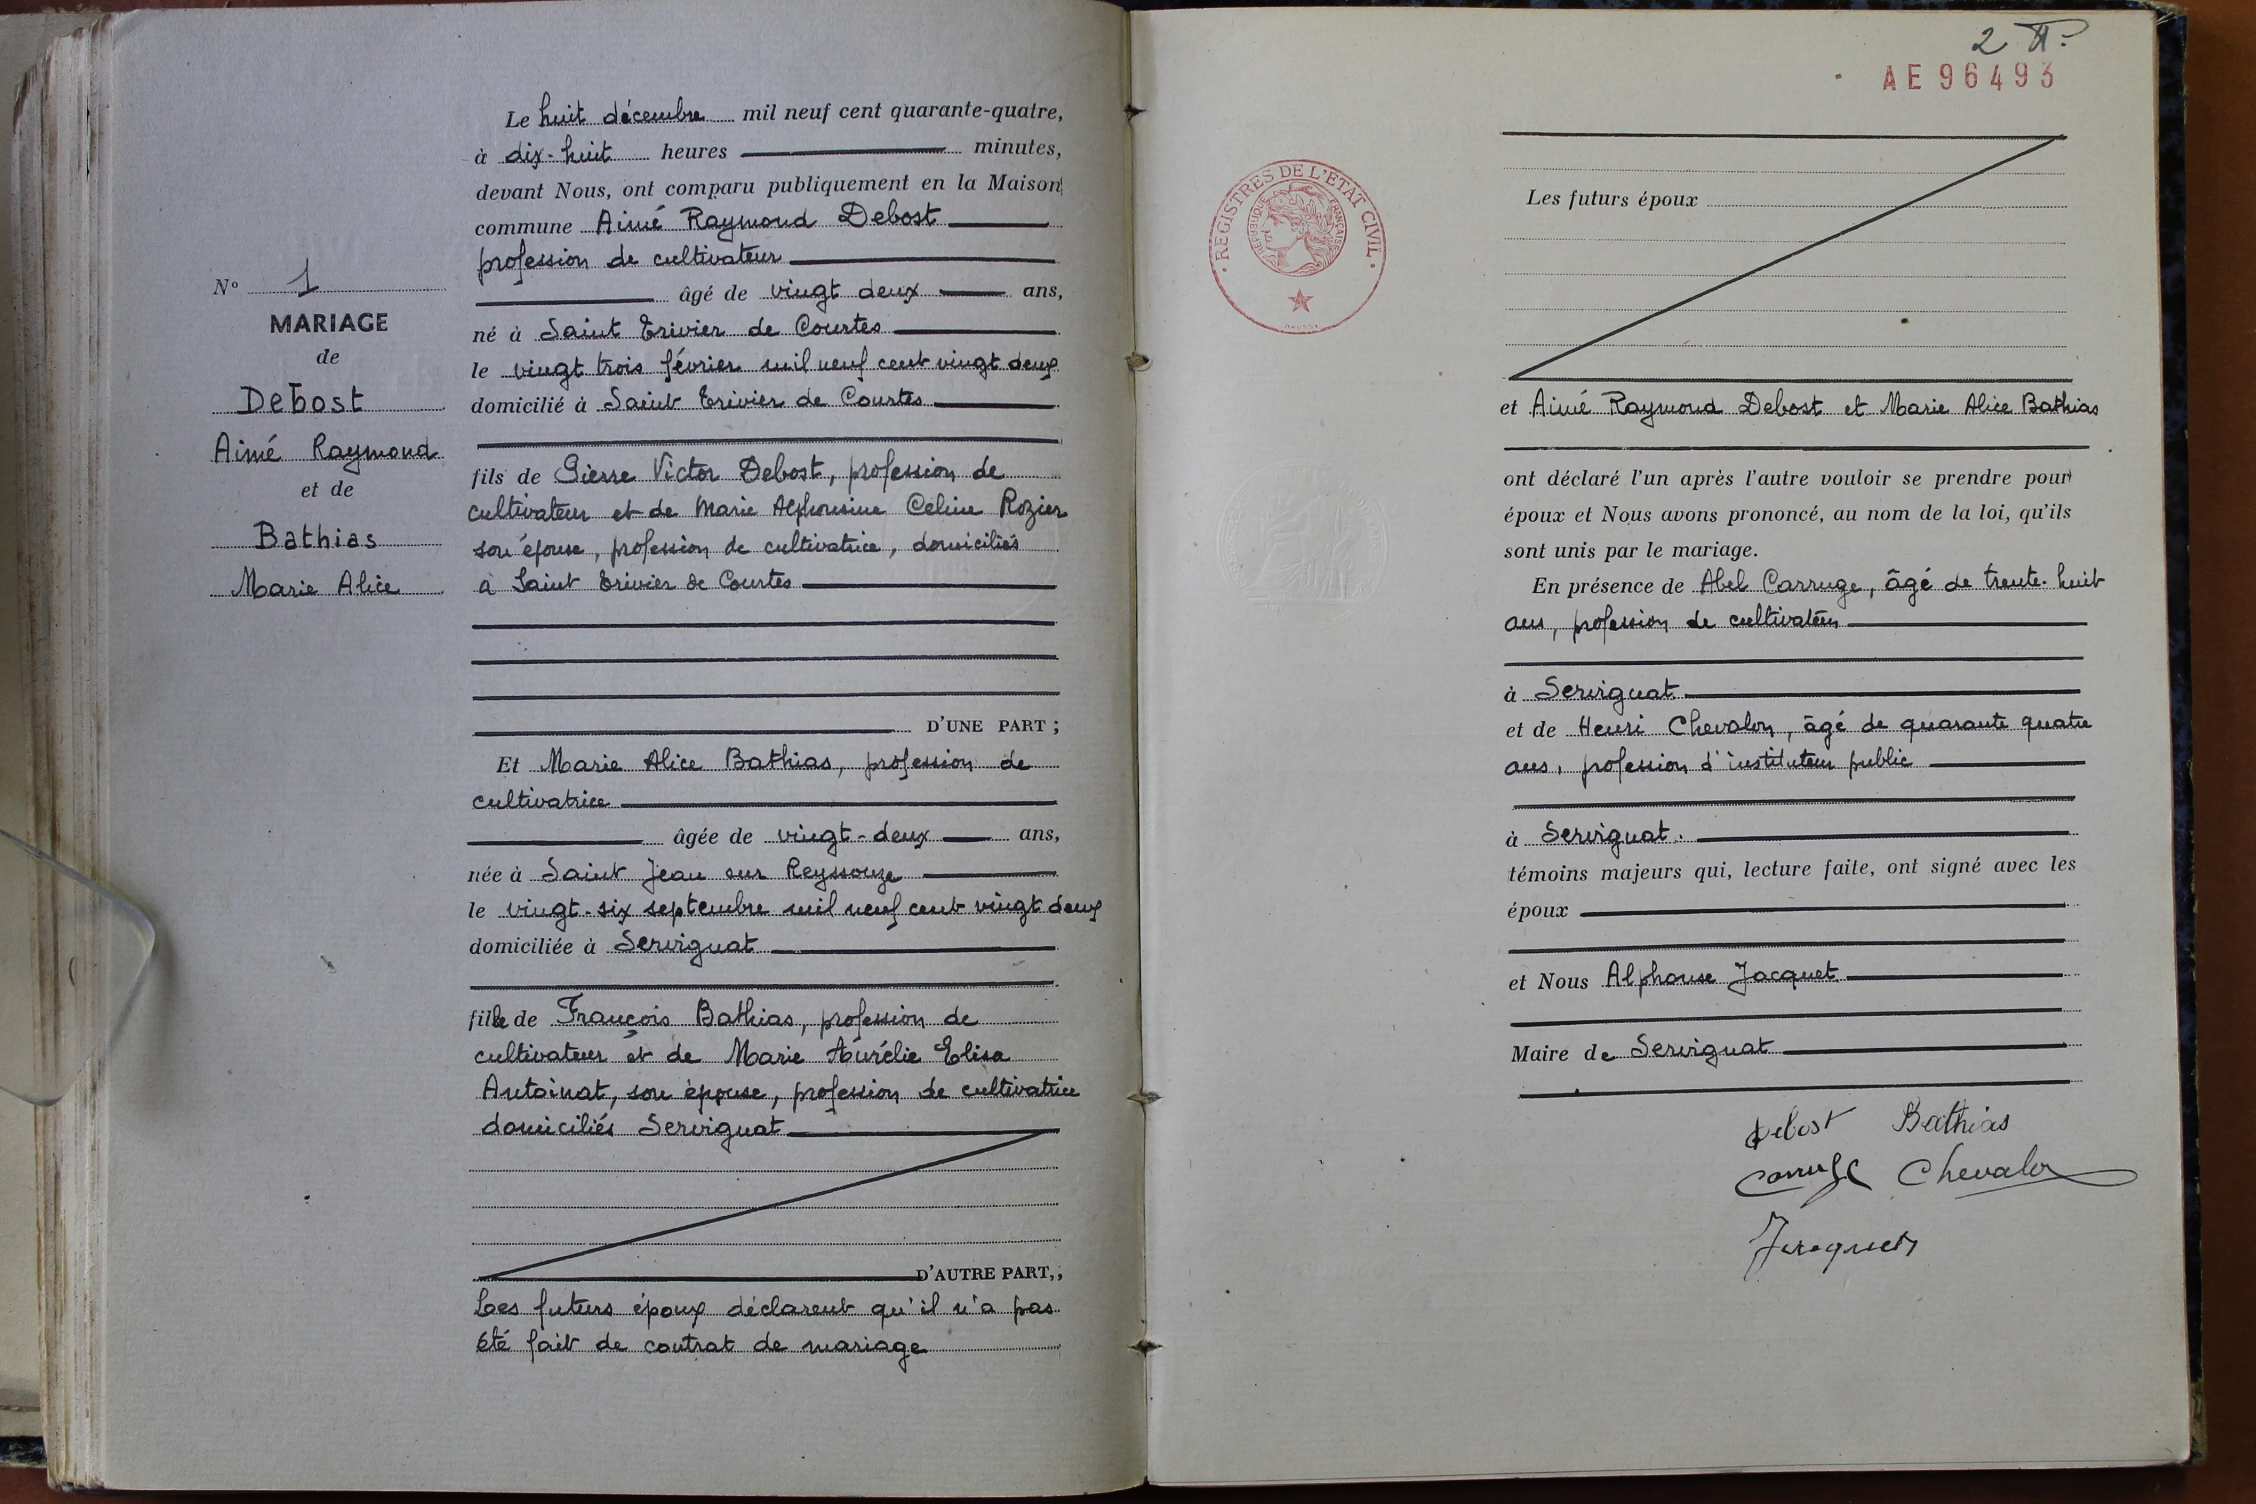 N° 1
MARIAGE
de
Debost
Aimé Raymond
et de
Bathias
Marie Alice
Le huit décembre mil neuf cent quarante-quatre,
à dix-huit heures minutes,
devant Nous, ont comparu publiquement en la Maison
commune Aimé Raymond Debost
profession de cultivateur
âgé de vingt deux ans,
né à Saint Trivier de Courtes
le vingt trois février mil neuf cent vingt deux
domicilié à Saint Trivier de Courtes
fils de Pierre Victor Debost, profession de
cultivateur et de Marie Alphonsine Céline Rozier
son épouse, profession de cultivatrice, domiciliés
à Saint Trivier de Courtes
D'UNE PART ;
Et Marie Alice Bathias, profession de
cultivatrice
âgée de vingt-deux ans,
née à Saint Jean sur Reyssouze
le vingt-six septembre mil neuf cent vingt deux
domiciliée à Servignat
fille de François Bathias, profession de
cultivateur et de Marie Aurélie Elisa
Antoinat, son épouse, profession de cultivatrice
domiciliés Servignat
D'AUTRE PART,,
Les futurs époux déclarent qu'il n'a pas
été fait de contrat de mariage
2
AE 96493
REGISTRES DE L'ETAT CIVIL
REPUBLIQUE FRANÇAISE
Les futurs époux
et Aimé Raymond Debost et Marie Alice Bathias
ont déclaré l'un après l'autre vouloir se prendre pour
époux et Nous avons prononcé, au nom de la loi, qu'ils
sont unis par le mariage.
En présence de Abel Carruge, âgé de trente-huit
ans, profession de cultivateur
à Servignat
et de Henri Chevalon, âgé de quarante quatre
ans, profession d'instituteur public
à Servignat.
témoins majeurs qui, lecture faite, ont signé avec les
époux
et Nous Alphonse Jacquet
Maire de Servignat
Debost Bathias
Carruge Chevalon
Jacquet